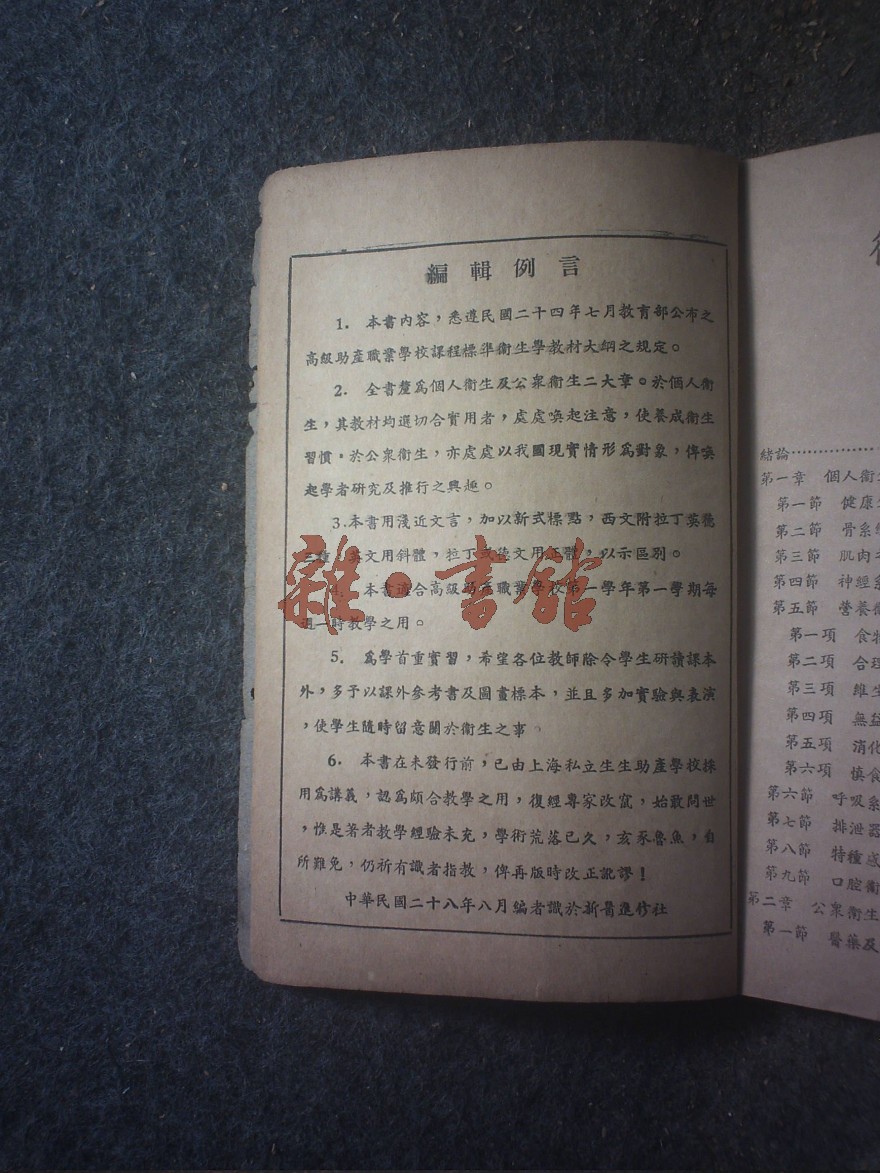 編輯例言
1. 本書內容，悉遵民國二十四年七月教育部公布之
高級助產職業學校課程標準衞生學教材大綱之規定。
2. 全書釐爲個人衞生及公衆衞生二大章。於個人衞
生，其教材均選切合實用者，處處喚起注意，使養成衞生
習慣。於公衆衞生，亦處處以我國現實情形爲對象，俾喚
起學者研究及推行之興趣。
3.本書用淺近文言，加以新式標點，西文附拉丁英德
三種。英文用斜體，拉丁或德文用正體，以示區別。
4. 本書適合高級助產職業學校第一學年第一學期每
週一時教學之用。
5. 爲學首重實習，希望各位教師除令學生研讀課本
外，多予以課外參考書及圖畫標本，並且多加實驗與表演
，使學生隨時留意關於衞生之事。
6. 本書在未發行前，已由上海私立生生助產學校採
用爲講義，認爲頗合教學之用，復經專家改竄，始敢問世
，惟是著者教學經驗未充，學術荒落已久，亥豕魯魚，自
所難免，仍祈有識者指教，俾再版時改正訛謬！
中華民國二十八年八月編者識於新醫進修社
雜·書館
緒論
第一章 個人衞生
第一節 健康
第二節 骨系
第三節 肌肉
第四節 神經系
第五節 營養
第一項 食物
第二項 合理
第三項 維生
第四項 無益
第五項 消化
第六項 慎食
第六節 呼吸系
第七節 排泄器
第八節 特種感
第九節 口腔衞
第二章 公衆衞生
第一節 醫藥及